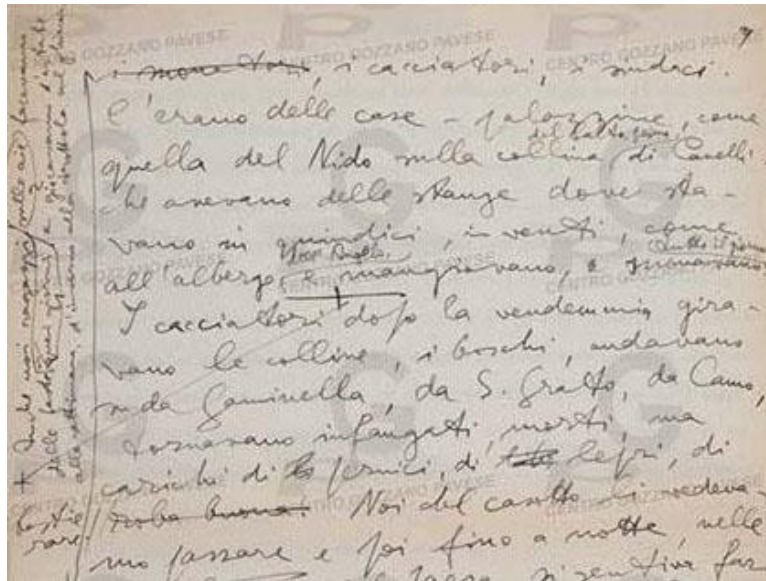 9
i suonatori, i cacciatori, i sindaci.
C'erano delle case – palazzine, come
quella del Nido sulla collina di Canelli
che avevano delle stanze dove sta-
vano in quindici, in venti, come
all'albergo e mangiavano, e suonavano
tutto il giorno
I cacciatori dopo la vendemmia gira-
vano le colline, i boschi, andavano
su da Gaminella, da S. Grato, da Camo,
tornavano infangati, morti, ma
carichi di pernici, di lepri, di
roba buona. Noi del casotto li vedeva-
mo passare e poi fino a notte, nelle
si sentiva far
Anche noi ragazzi sulle aie facevamo
delle feste
CENTRO GOZZANO PAVESE